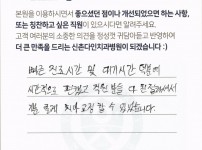 본원을 이용하시면서 좋으셨던 점이나 개선되었으면 하는 사항,
또는 칭찬하고 싶은 직원이 있으시다면 알려주세요.
고객 여러분의 소중한 의견을 정성껏 귀담아듣고 반영하여
더 큰 만족을 드리는 신촌다인치과병원이 되겠습니다 :)
빠른 진료시간 및 대기시간 덕분에
시간적으로 편했고 직원 분들 다 친절하셔서
잘 치아 교정 할 수 있었습니다.